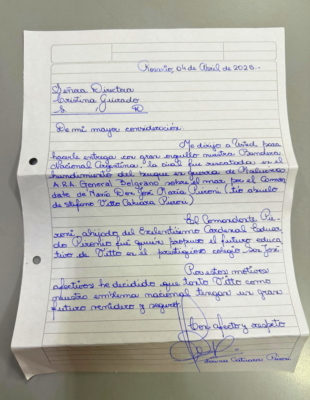 Rosario, 04 de Abril de 2025.-
Señora Directora
Cristina Guirado
S / D
De mi mayor consideración:
Me dirijo a Usted para
hacerle entrega con gran orgullo nuestra Bandera
Nacional Argentina. la cual fue rescatada en el
hundimiento del buque en Guerra de Malvinas
A.R.A. General Belgrano sobre el mar, por el Coman-
dante de Navío Don José María Pironi (tío abuelo
de Stéfano Vitto Cattuara Pironi).
El Comandante Pi-
roni, ahijado del Excelentísimo Cardenal Eduar-
do Pironio fué quien propuso el futuro educa-
tivo de Vitto en el prestigioso colegio San José
Por estos motivos
afectivos he decidido que tanto Vitto como
nuestro emblema nacional tengan un gran
futuro venidero y seguro.
Con afecto y respeto
Pironi